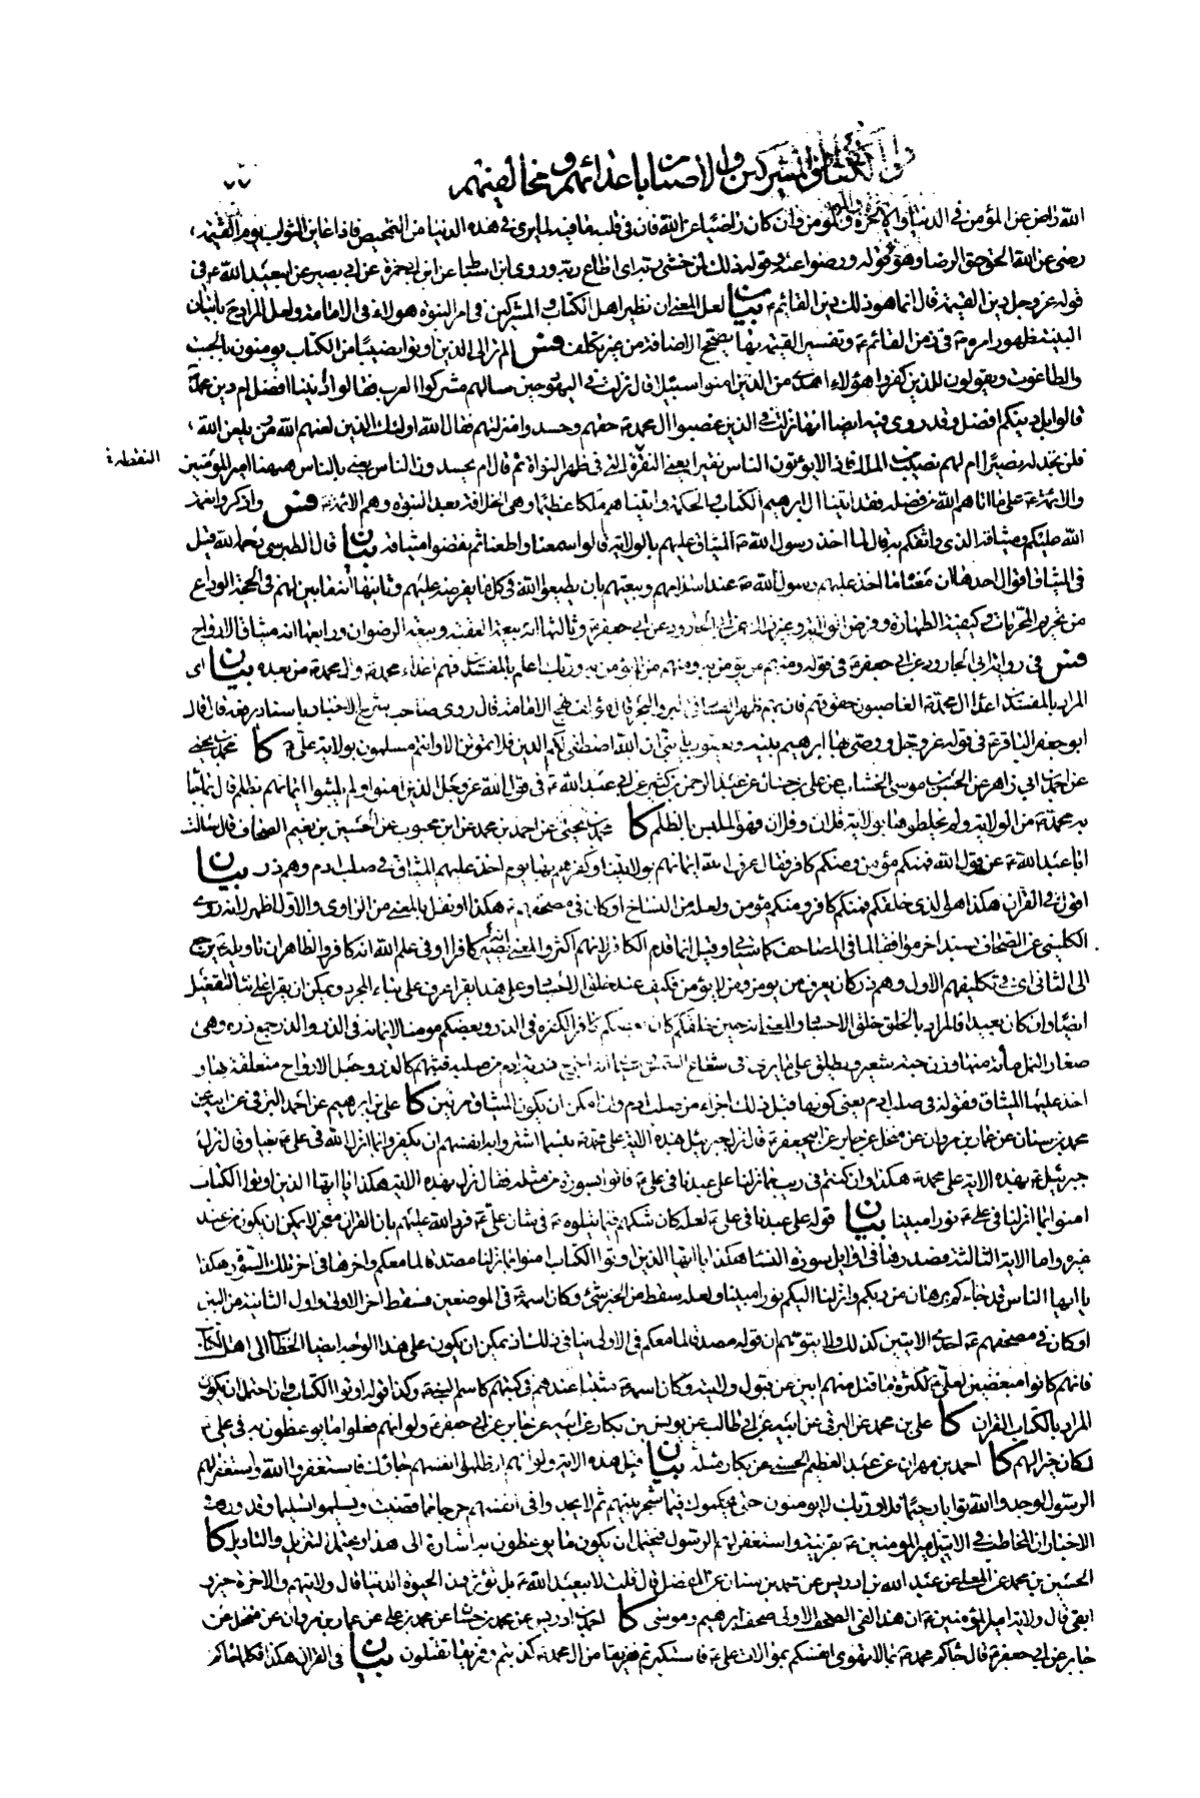 والكفار والمشركين والاصنام باعدائهم ومخالفيهم
٧٧
الله راض عن المؤمن في الدنيا والاخرة والمؤمن وان كان راضيا عن الله فان في قلبه ما فيه لما يرى في هذه الدنيا من التمحيص فاذا عاين الثواب يوم القيمة
رضي عن الله الحق حق الرضا وهو قوله ورضوا عنه وقوله ذلك لمن خشي ربه اي اطاع ربه وروى ابن اسباط عن ابن ابي حمزة عن ابي بصير عن ابيعبد الله ع في
قوله عز وجل دين القيمة قال انما هو ذلك دين القائم ع بيان لعل المعنى ان نظير اهل الكتاب والمشركين في امر النبوة هؤلاء في الامامة ولعل المراد ح باتيان
البينة ظهور امره ع في زمن القائم ع وتفسير القيمة بها يصحح الاضافة من غير تكلف فس الم تر الى الذين اوتوا نصيبا من الكتاب يؤمنون بالجبت
والطاغوت ويقولون للذين كفروا هؤلاء اهدى من الذين امنوا سبيلا قال نزلت في اليهود حين سالهم مشركوا العرب فقالوا اديننا افضل ام دين محمد
قالوا بل دينكم افضل وقد روى فيه ايضا انها نزلت في الذين غصبوا ال محمد ع حقهم وحسدوا منزلتهم فقال الله اولئك الذين لعنهم الله ومن يلعن الله
فلن تجد له نصيرا ام لهم نصيب من الملك فاذا لا يؤتون الناس نقيرا يعني النقرة التي في ظهر النواة ثم قال ام يحسدون الناس يعني بالناس هيهنا امير المؤمنين
النقطة
والائمة ع على ما اتاهم الله من فضله فقد اتينا ال ابرهيم الكتاب والحكمة واتيناهم ملكا عظيما وهي الخلافة بعد النبوة وهم الائمة ع فس واذكروا نعمة
الله عليكم وميثاقه الذي واثقكم به قال لما اخذ رسول الله ص الميثاق عليهم بالولاية قالوا سمعنا واطعنا ثم نقضوا ميثاقه بيان قال الطبرسي رحمه الله قيل
في الميثاق اقوال احدها ان معناه ما اخذ عليهم رسول الله ص عند اسلامهم وبيعتهم بان يطيعوا الله في كل ما يفرضه عليهم وثانيها انه ما بين لهم في الحجة الوداع
من تحريم المحرمات وكيفية الطهارة وفرض الولاية وغير ذلك عن ابي الجارود عن ابي جعفر ع وثالثها انه بيعة العقبة وبيعة الرضوان ورابعها انه ميثاق الارواح
فس في رواية ابي الجارود عن ابي جعفر ع في قوله ومنهم من يؤمن به ومنهم من لا يؤمن به وربك اعلم بالمفسدين فهم اعداء محمد وال محمد ص من بعده بيان اى
المراد بالمفسدين اعداء ال محمد الغاصبون حقوقهم فان بهم ظهر الفساد في البر والبحر قال مؤلف نهج الامامة قال روى صاحب شرح الاخبار باسناده يرفعه قال قال
ابو جعفر الباقر ع في قوله عز وجل ووصى بها ابرهيم بنيه ويعقوب يا بني ان الله اصطفى لكم الدين فلا تموتن الا وانتم مسلمون بولاية علي ع كا محمد بن يحيى
عن احمد بن ابي زاهر عن الحسن بن موسى الخشاب عن علي بن حسان عن عبد الرحمن بن كثير عن ابي عبد الله ع في قول الله عز وجل الذين امنوا ولم يلبسوا ايمانهم بظلم قال بما جاء
به محمد ص من الولاية ولم يخلطوها بولاية فلان وفلان فهو الملبس بالظلم كا محمد بن يحيى عن احمد بن محمد عن ابن محبوب عن الحسين بن نعيم الصحاف قال سالت
ابا عبد الله ع عن قول الله فمنكم مؤمن ومنكم كافر فقال عرف الله ايمانهم بولايتنا وكفرهم بها يوم اخذ عليهم الميثاق في صلب ادم وهم ذر بيان
اقول في القران هكذا هو الذي خلقكم فمنكم كافر ومنكم مؤمن ولعله من النساخ او كان في مصحفهم ع هكذا او نقل بالمعنى من الراوي والاول اظهر لانه روى
الكليني عن الصحاف بسند اخر موافقا لما في المصاحف كما سياتي وقيل انما قدم الكافر لانهم اكثر والمعنى انه يصير كافرا او في علم الله انه كافر والظاهر ان تاويله ع يرجع
الى الثاني اى في تكليفهم الاول وهم ذر كان يعرف من يؤمن ومن لا يؤمن فكيف عند خلق الاجساد وعلى هذا يقرا عرف على بناء المجرد ويمكن ان يقرا على بناء التفعيل
ايضا وان كان بعيدا فالمراد بالخلق خلق الاجساد والمعنى انه حين خلقكم كان بعضكم كافرا لكفره في الذر وبعضكم مؤمنا لايمانه في الذر والذر جمع ذرة وهي
صغار النمل مائة منها وزن حبة شعير ويطلق على ما يرى في شعاع الشمس شبيها انه اخرج ذرية ادم من صلبه فبثهم كالذر وجعل الارواح متعلقة بها و
اخذ عليها الميثاق فقوله في صلب ادم يعني كونها قبل ذلك اجزاء من صلب ادم وان امكن ان يكون الميثاق مرتين كا علي بن ابرهيم عن احمد البرقي عن ابيه عن
محمد بن سنان عن عمار بن مروان عن منخل عن جابر عن ابي جعفر ع قال نزل جبرئيل بهذه الاية على محمد ص بئسما اشتروا به انفسهم ان يكفروا بما انزل الله في علي ع بغيا وقال نزل
جبرئيل ع بهذه الاية على محمد ص هكذا وان كنتم في ريب مما نزلنا على عبدنا في علي ع فاتوا بسورة من مثله وقال نزل بهذه الاية هكذا يا ايها الذين اوتوا الكتاب
امنوا بما انزلنا في علي ع نورا مبينا بيان قوله على عبدنا في علي ع لعله كان شكهم فيما يتلوه ص في شان علي ع فرد الله عليهم بان القران معجز لا يمكن ان يكون من عند
غيره واما الاية الثالثة فصدرها في اوايل سورة النساء هكذا يا ايها الذين اوتوا الكتاب امنوا بما نزلنا مصدقا لما معكم واخرها في اخر تلك السورة هكذا
يا ايها الناس قد جاءكم برهان من ربكم وانزلنا اليكم نورا مبينا ولعله سقط من الخبر شيء وكان اسمه ع في الموضعين فسقط اخر الاولى واول الثانية من البين
او كان في مصحفهم ع احدى الايتين كذلك ولا يتوهم ان قوله مصدقا لما معكم في الاولى ينافي ذلك اذ يمكن ان يكون على هذا الوجه ايضا الخطاب الى اهل الكتاب
فانهم كانوا مبغضين لعلي ع لكثرة ما قتل منهم ابين عن قبول ولايته وكان اسمه ع مثبتا عندهم في كتبهم كاسم النبي ص وكذا قوله اوتوا الكتاب وان احتمل ان يكون
المراد بالكتاب القران كا علي بن محمد عن البرقي عن ابيه عن ابي طالب عن يونس بن بكار عن ابيه عن جابر عن ابي جعفر ع ولو انهم فعلوا ما يوعظون به في علي ع
لكان خيرا لهم كا احمد بن مهران عن عبد العظيم الحسني عن بكار مثله بيان قبل هذه الاية ولو انهم اذ ظلموا انفسهم جاؤك فاستغفروا الله واستغفر لهم
الرسول لوجدوا الله توابا رحيما فلا وربك لا يؤمنون حتى يحكموك فيما شجر بينهم ثم لا يجدوا في انفسهم حرجا مما قضيت ويسلموا تسليما وقد ورد في
الاخبار ان المخاطب في الايتين امير المؤمنين ع بقرينة واستغفر لهم الرسول فيحتمل ان يكون ما يوعظون به اشارة الى هذا ويحتمل التنزيل والتاويل كا
الحسين بن محمد عن المعلى عن عبد الله بن ادريس عن محمد بن سنان عن المفضل قال قلت لابيعبد الله ع بل تؤثرون الحيوة الدنيا قال ولايتهم والاخرة خير و
ابقى قال ولاية امير المؤمنين ع ان هذا لفي الصحف الاولى صحف ابرهيم وموسى كا احمد بن ادريس عن محمد بن حسان عن محمد بن علي عن عمار بن مروان عن منخل عن
جابر عن ابي جعفر ع قال جاءكم محمد ص بما لا تهوى انفسكم بموالاة علي ع فاستكبرتم ففريقا من ال محمد كذبتم وفريقا تقتلون بيان في القران هكذا افكلما جاءكم